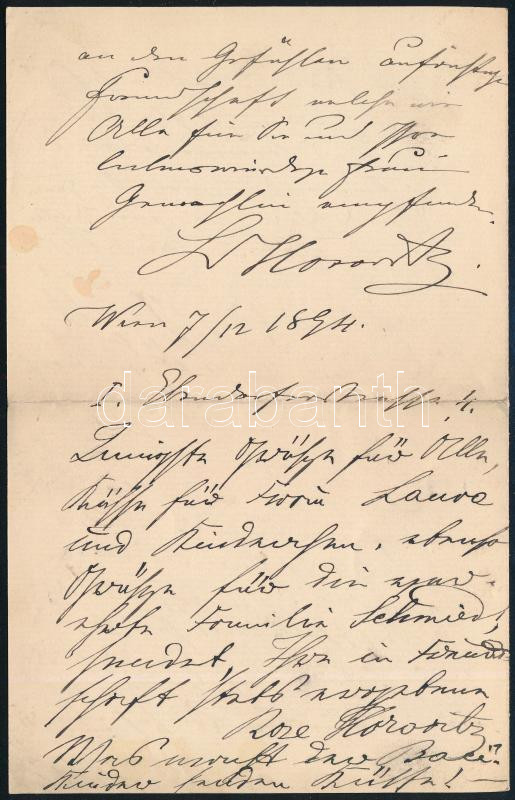 an den Gefühlen aufrichtiger
Freundschaft welche wir
Alle für Sie und Ihre
liebenswürdige Frau
Gemahlin empfinden.
L Horovitz.
Wien 7/12 1894.
darabanth
I. Ebendorferstrasse 4.
Innigste Grüße für Alle,
Küsse für Frau Laura
und Kinderchen, ebenso
Grüße für die
Familie Schmied,
sendet, Ihre in Freund-
schaft stets ergebene
Rose Horovitz
Was macht der
Kinder senden Küsse! —